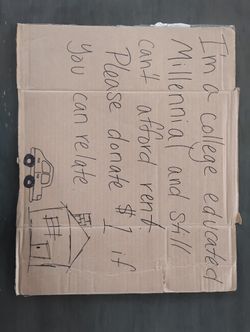 I'm a college educated
Millennial and still
can't afford rent
Please donate $1 if
you can relate